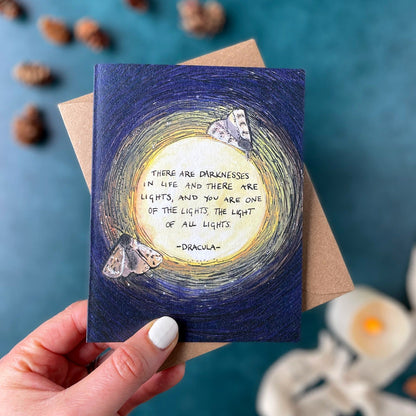 THERE ARE DARKNESSES
IN LIFE AND THERE ARE
LIGHTS, AND YOU ARE ONE
OF THE LIGHTS, THE LIGHT
OF ALL LIGHTS.
-DRACULA-